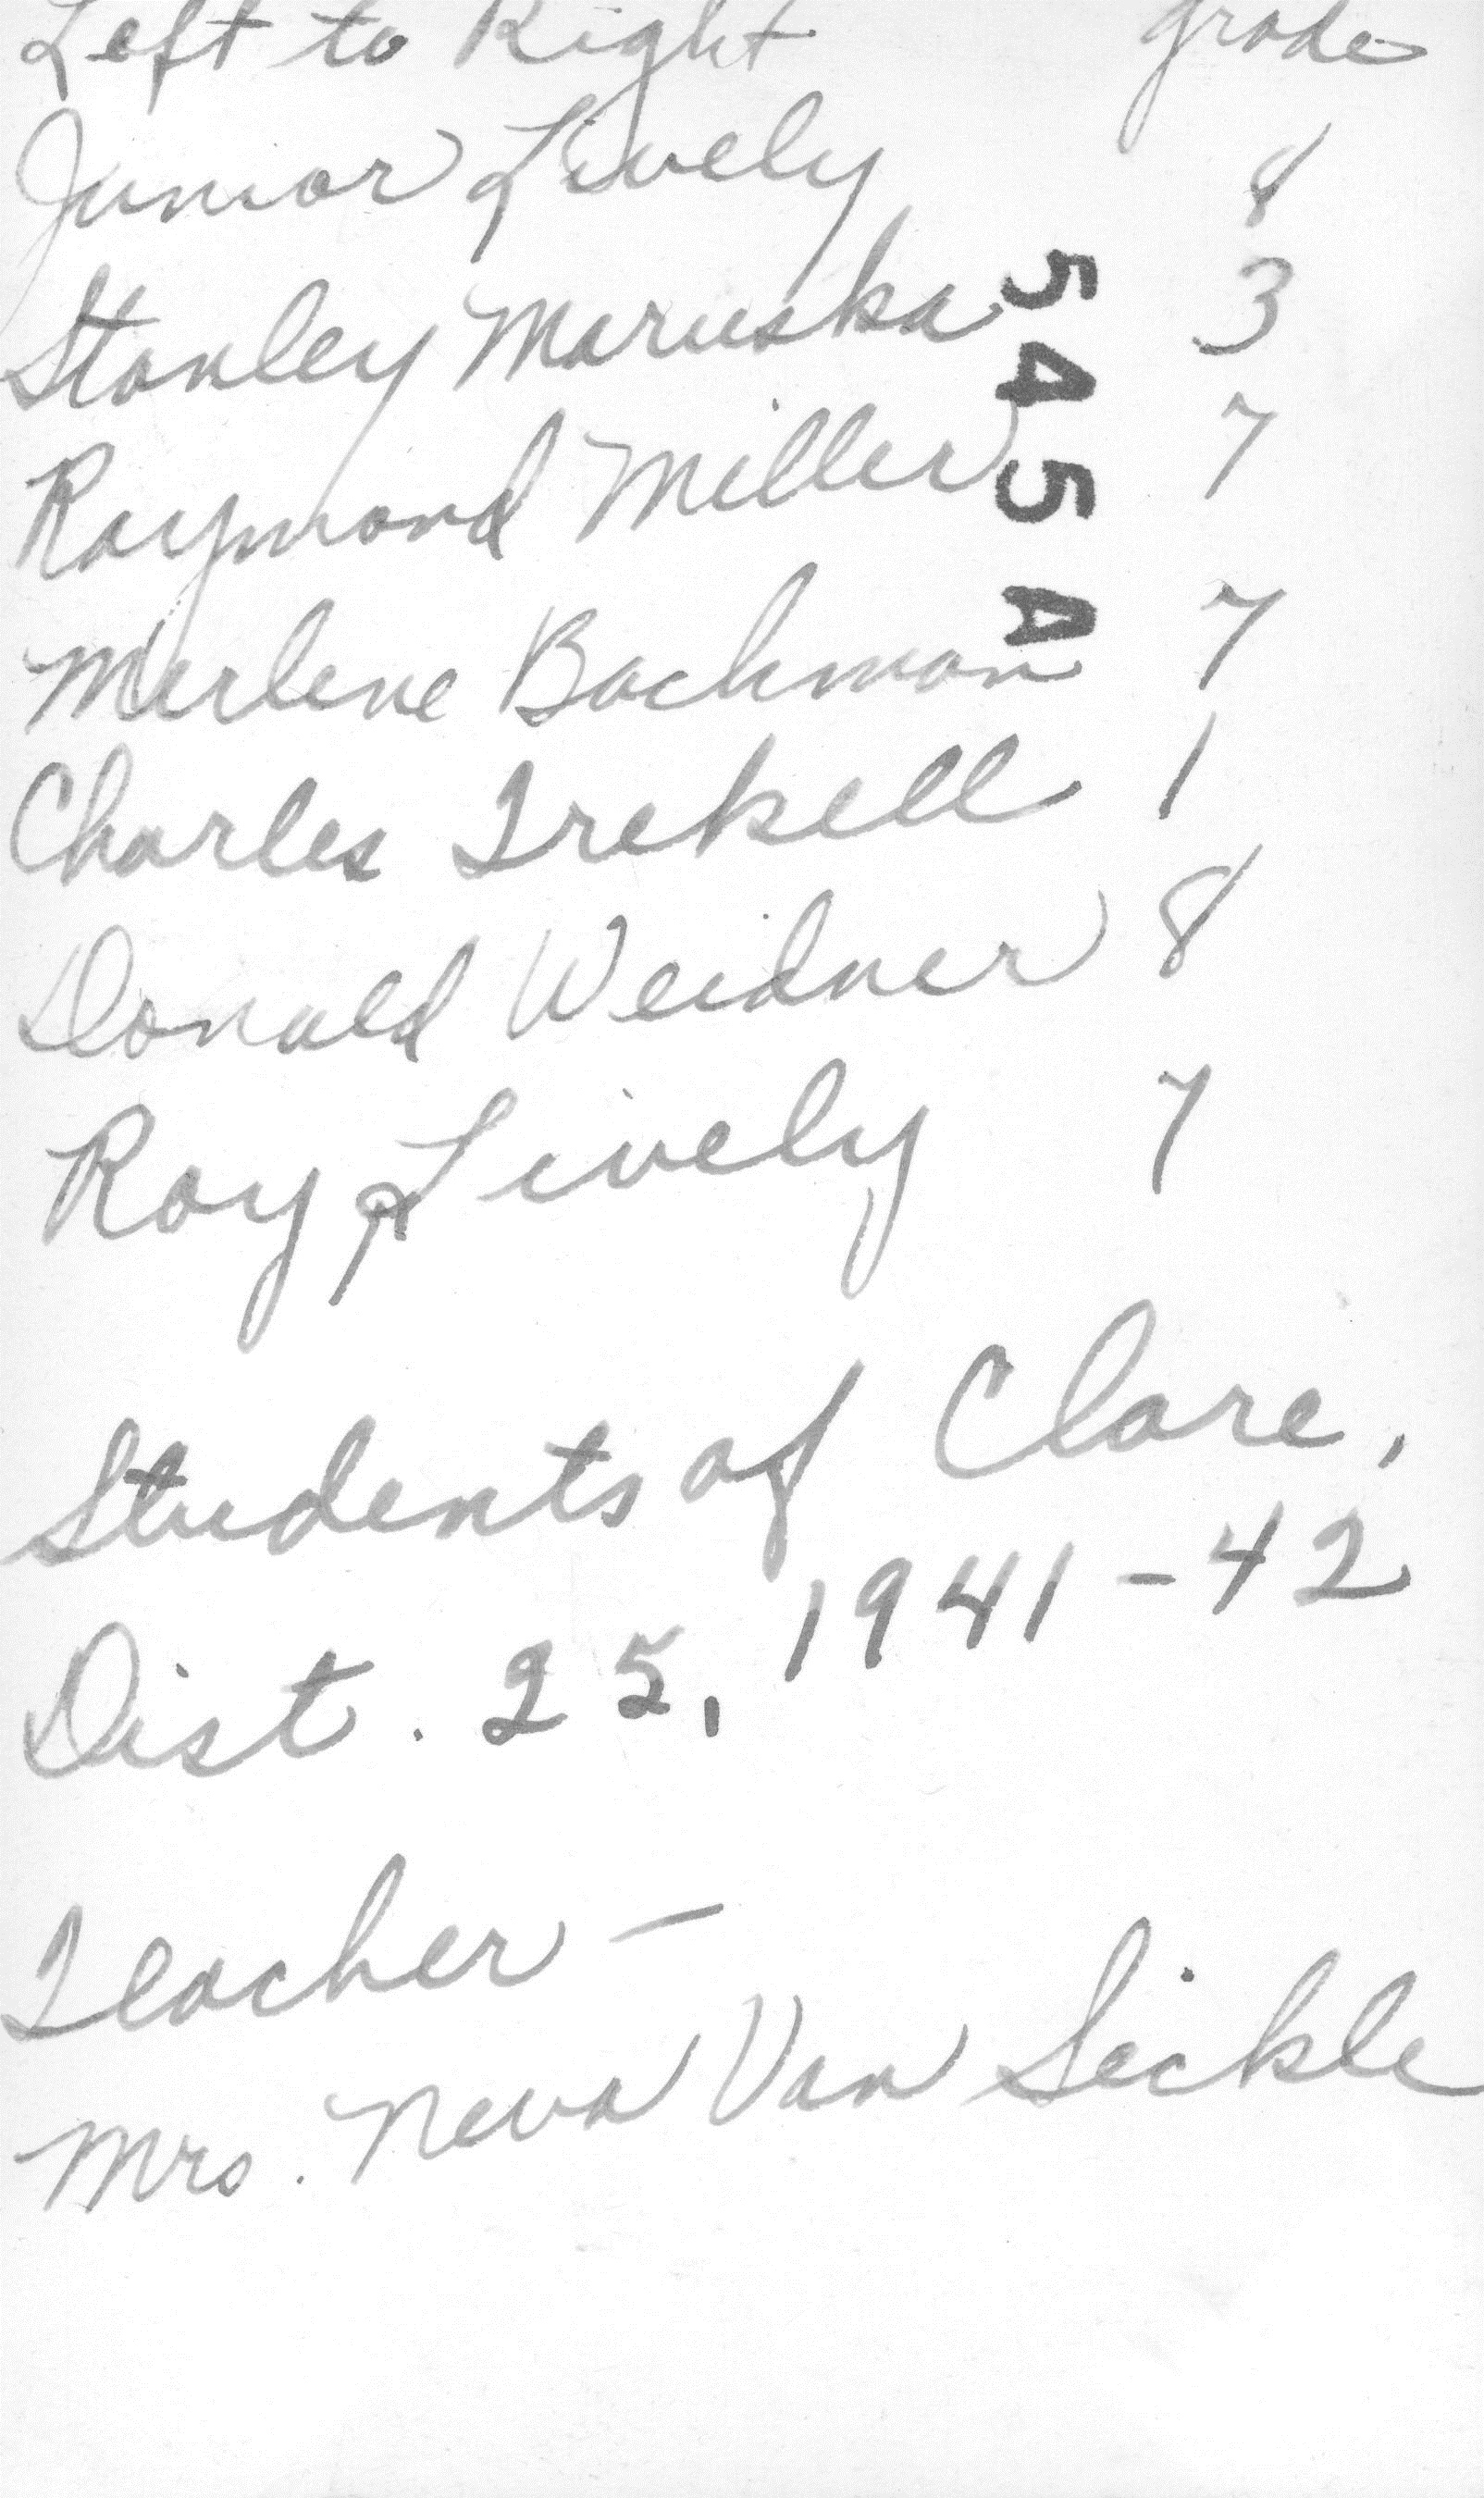 Left to Right grade
Junior Lively 8
Stanley Maruska 3
Raymond Miller 7
Merlene Bachman 7
Charles Trekell 1
Donald Weidner 8
Roy Lively 7
545A
Students of Clare,
Dist. 25, 1941-42
Teacher —
Mrs. Neva Van Sickle